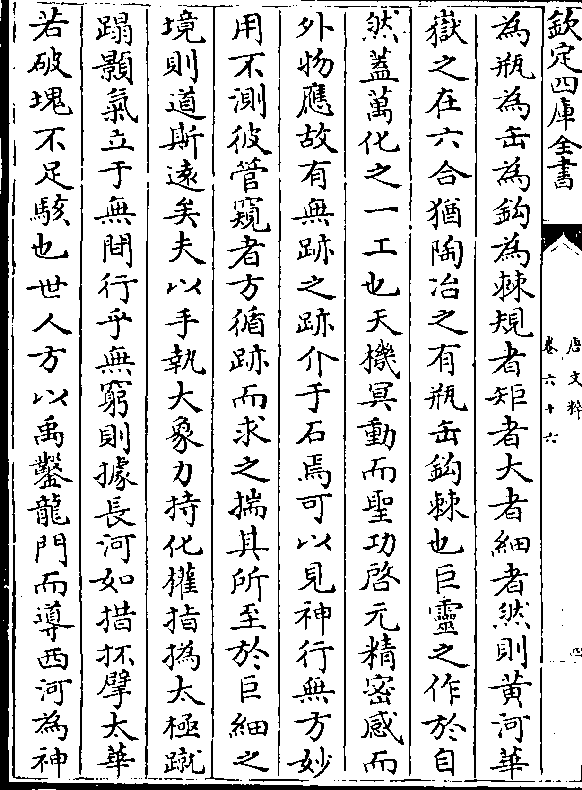 欽定四庫全書
唐文粹
卷六十六
四
為瓶為缶為鈎為棘規者矩者大者細者然則黃河華
嶽之在六合猶陶冶之有瓶缶鈎棘也巨靈之作於自
然蓋萬化之一工也天機冥動而聖功啓元精密感而
外物應故有無跡之跡介于石焉可以見神行無方妙
用不測彼管窺者方循跡而求之揣其所至於巨細之
境則道斯遠矣夫以手執大象力持化權指撝太極蹴
蹋顥氣立于無間行乎無窮則據長河如措杯擘太華
若破塊不足駭也世人方以禹鑿龍門而導西河為神